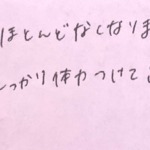 ほとんどなくなりま
っかり体力つけて